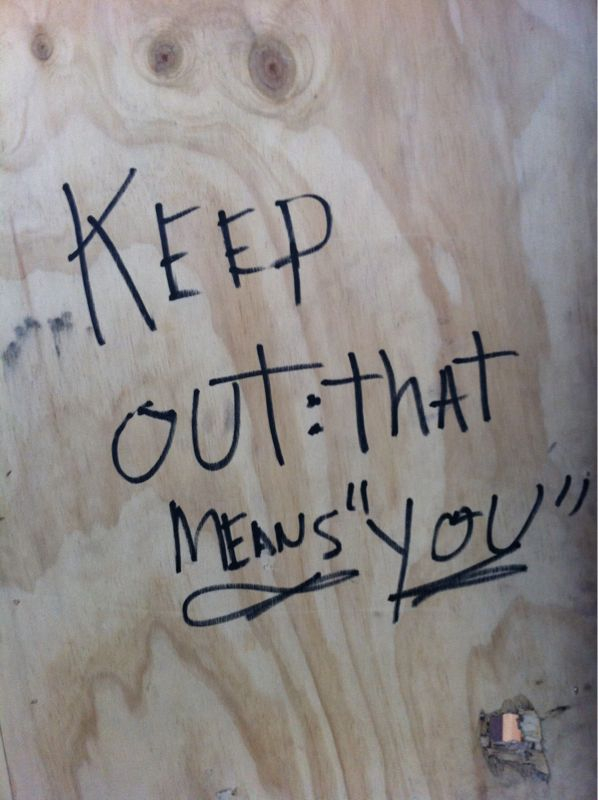 KEEP
OUT: thAT
MEANS "YOU"